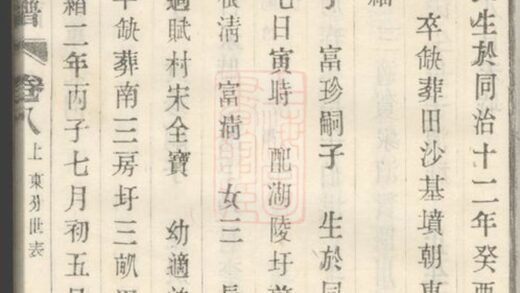 生於同治十二年癸酉
卒缺葬田沙基墳朝東
子 富珍嗣子 生於同
七日寅時 配湖陵圩
根清 富 女三 長
適賦村宋全寶 幼適
卒缺葬南三房圩三畝
緒二年丙子七月初五日
譜 卷八 上 東分世表